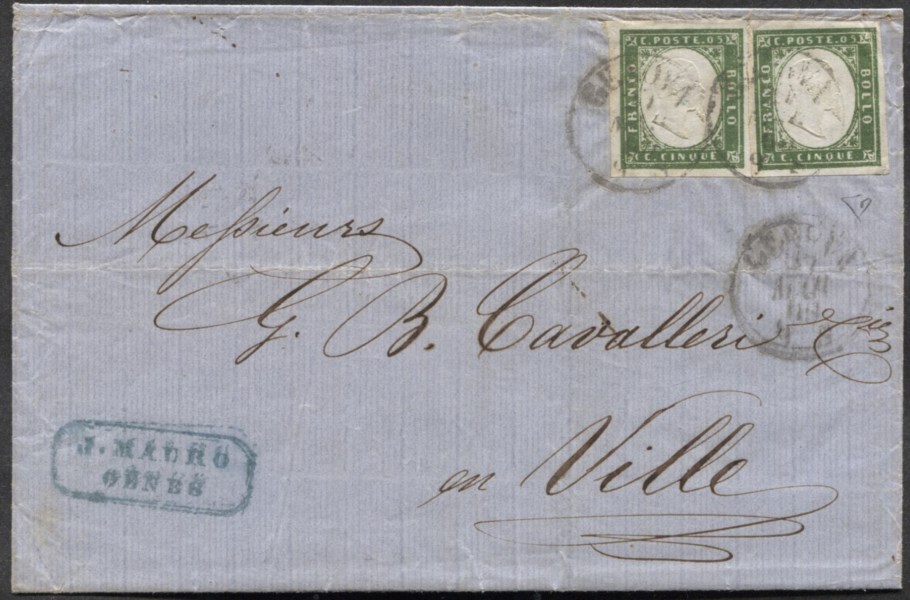 C. POSTE. 05
FRANCO
BOLLO
C. CINQUE
C. POSTE. 05
FRANCO
BOLLO
C. CINQUE
Messieurs
GENOVA
G. B. Cavalleri & Cie
en Ville
J. MAURO
GÊNES